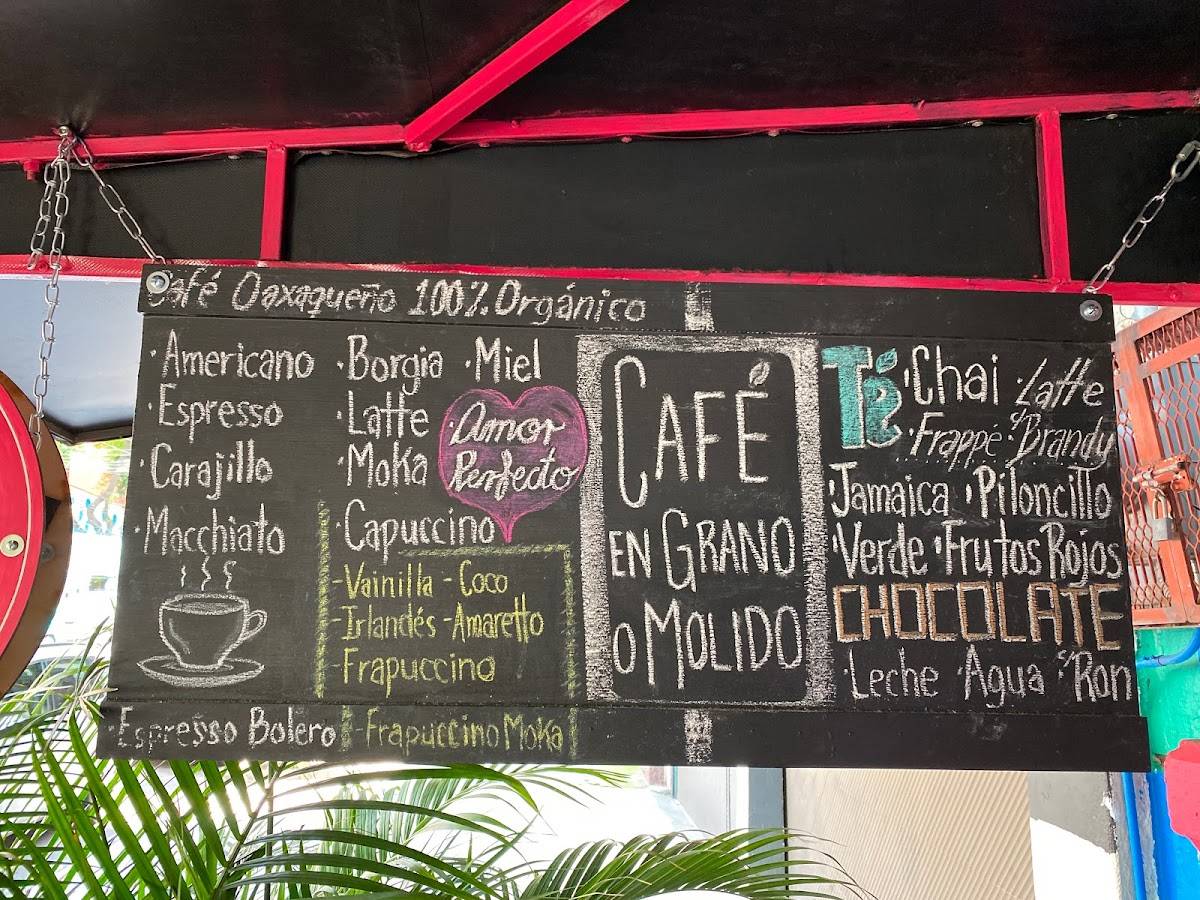 Café Oaxaqueño 100% Orgánico
·Americano
·Espresso
·Carajillo
·Macchiato
·Espresso Bolero
·Borgia ·Miel
·Latte
·Moka
·Amor
Perfecto
·Capuccino
-Vainilla -Coco
-Irlandés -Amaretto
-Frapuccino
-Frapuccino Moka
CAFÉ
EN GRANO
O MOLIDO
Té
·Chai ·Latte
·Frappé ·c/Brandy
·Jamaica ·Piloncillo
·Verde ·Frutos Rojos
CHOCOLATE
·Leche ·Agua c/Ron